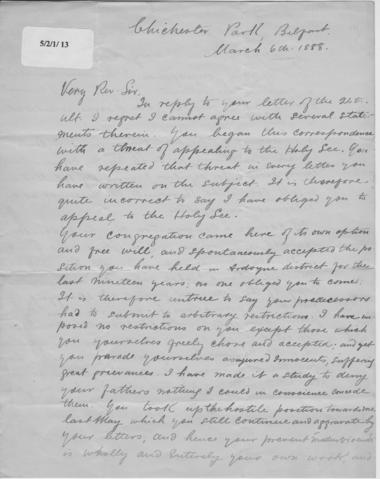 5/2/1/13
Chichester Park, Belfast
March 6th. 1888.
Very Rev Sir.
In reply to your letter of the
ult. I regret I cannot agree with several state-
ments therein. You began this correspondence
with a threat of appealing to the Holy See. You
have repeated that threat in every letter you
have written on the subject. It is therefore
quite incorrect to say I have obliged you to
appeal to the Holy See.
Your congregation came here of its own option
and free will, and spontaneously accepted the po
sition you have held in Ardoyne district for the
last nineteen years; no one obliged you to come.
It is therefore untrue to say your predecessors
had to submit to arbitrary restrictions. I have im
posed no restrictions on you except those which
you yourselves freely chose and accepted, and yet
you parade yourselves as injured Innocents, suffering
great grievances. I have made it a study to deny
your fathers nothing I could in conscience concede
them. You took up the hostile position towards me
last May which you still continue and aggravate by
your letters, and hence your present
is wholly and entirely your own work and